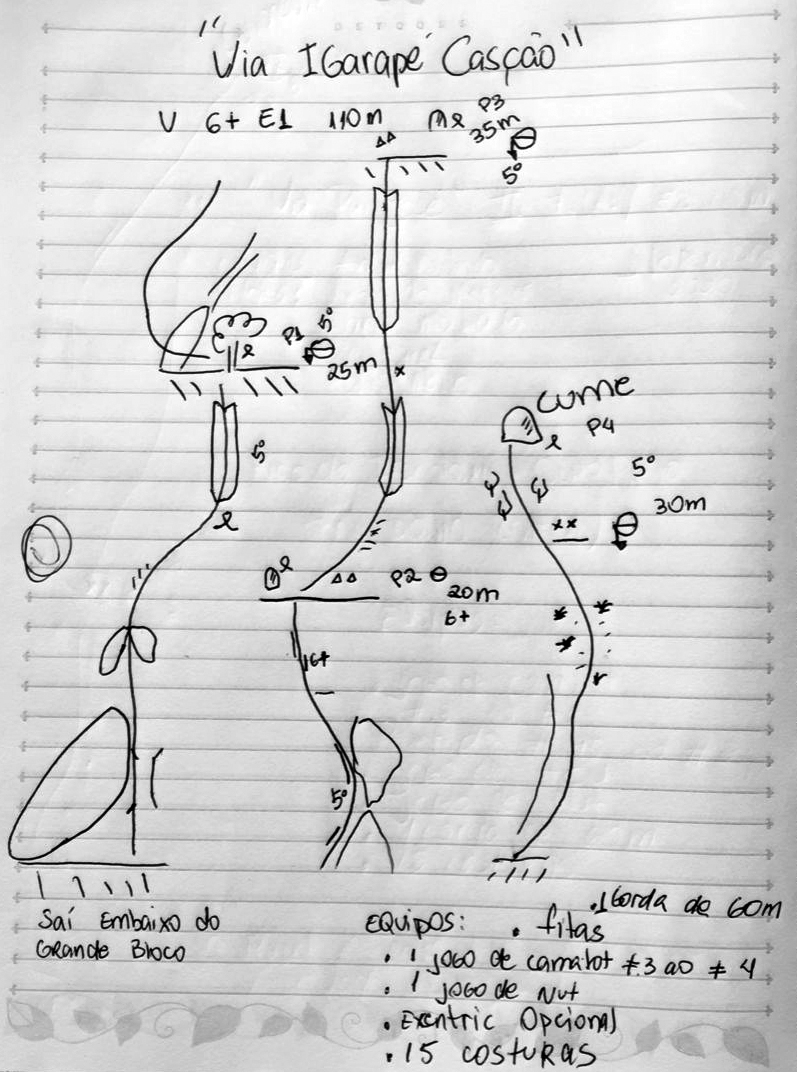 "Via IGarapé Casção"
V 6+ E1 110m
P3
35m
5º
P1 5º
25m
5º
cume
P4
5º
30m
P2
20m
6+
6+
5º
Saí Embaixo do
Grande Bloco
EQUIPOS:
. 1 Corda de 60m
. fitas
. 1 JOGO de camalot ≠.3 ao ≠ 4
. 1 JOGO de Nut
. Exentric Opcional
. 15 COSTURAS